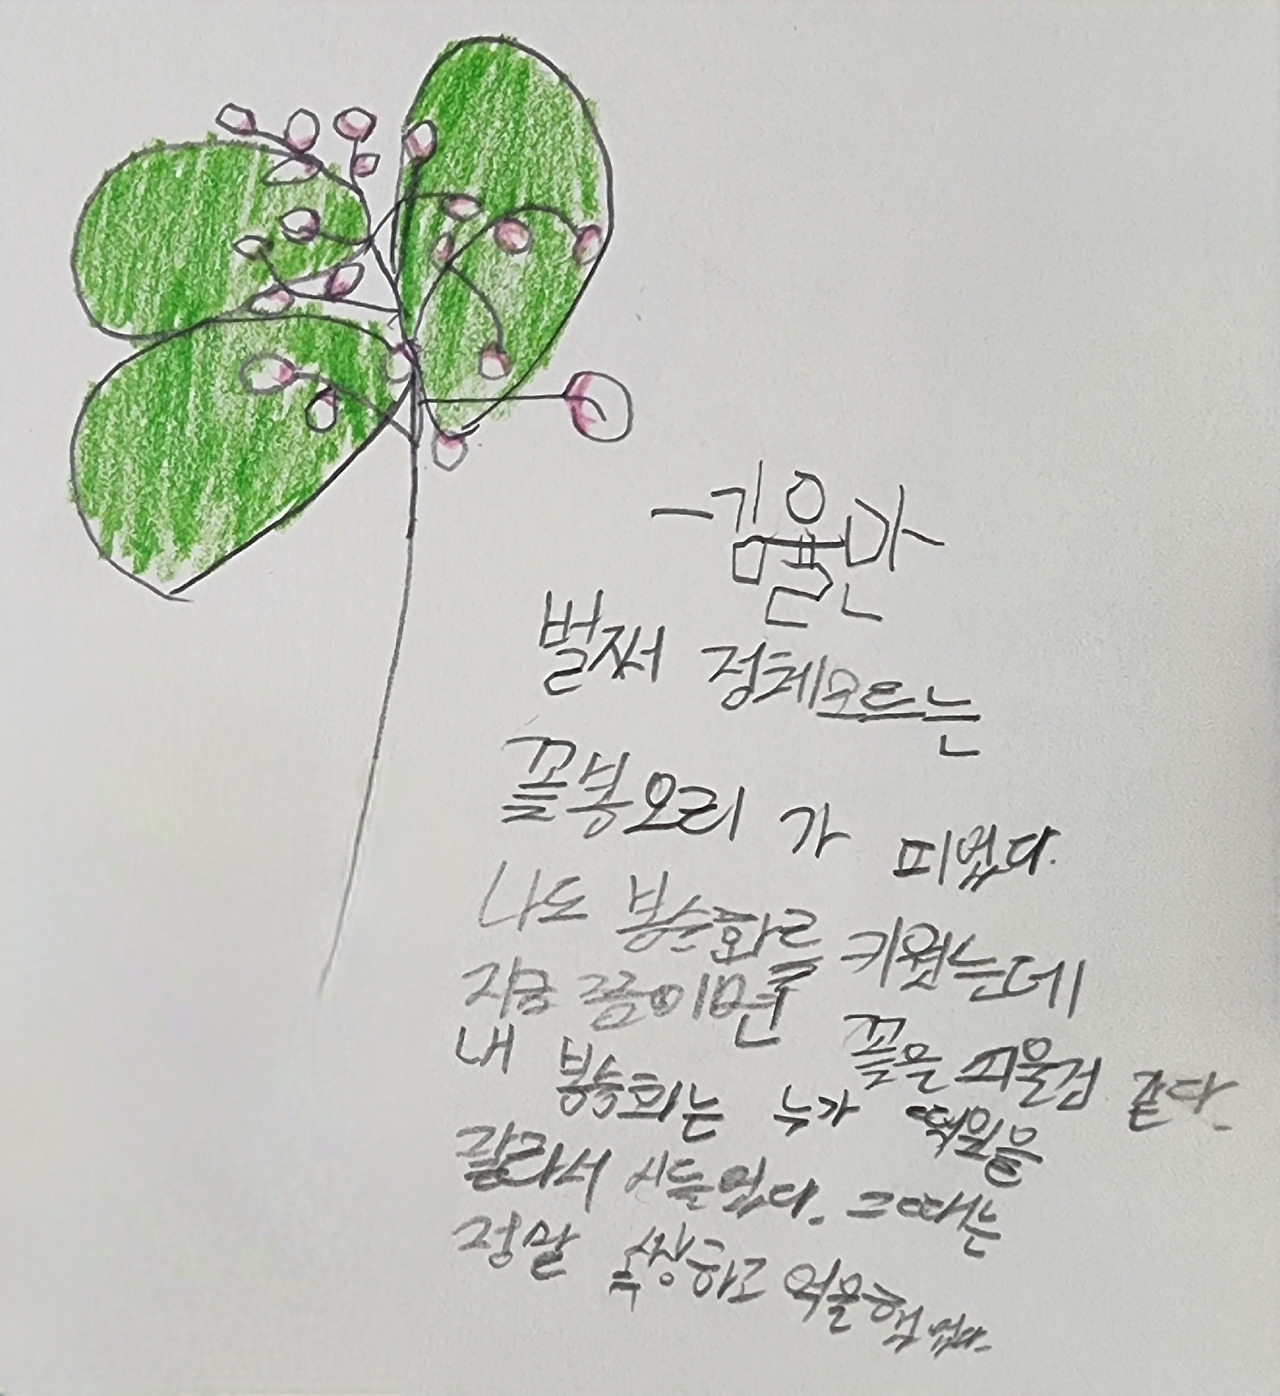 벌써 정체모르는
꽃봉오리 가 피었다.
나도 봉순화를 키웠는데
지금 쯤이면 꽃을 피울겄 같다.
내 봉숭화는 누가 떡잎을
잘라서 시들었다. 그때는
정말 속쌍하고 억울했었다.